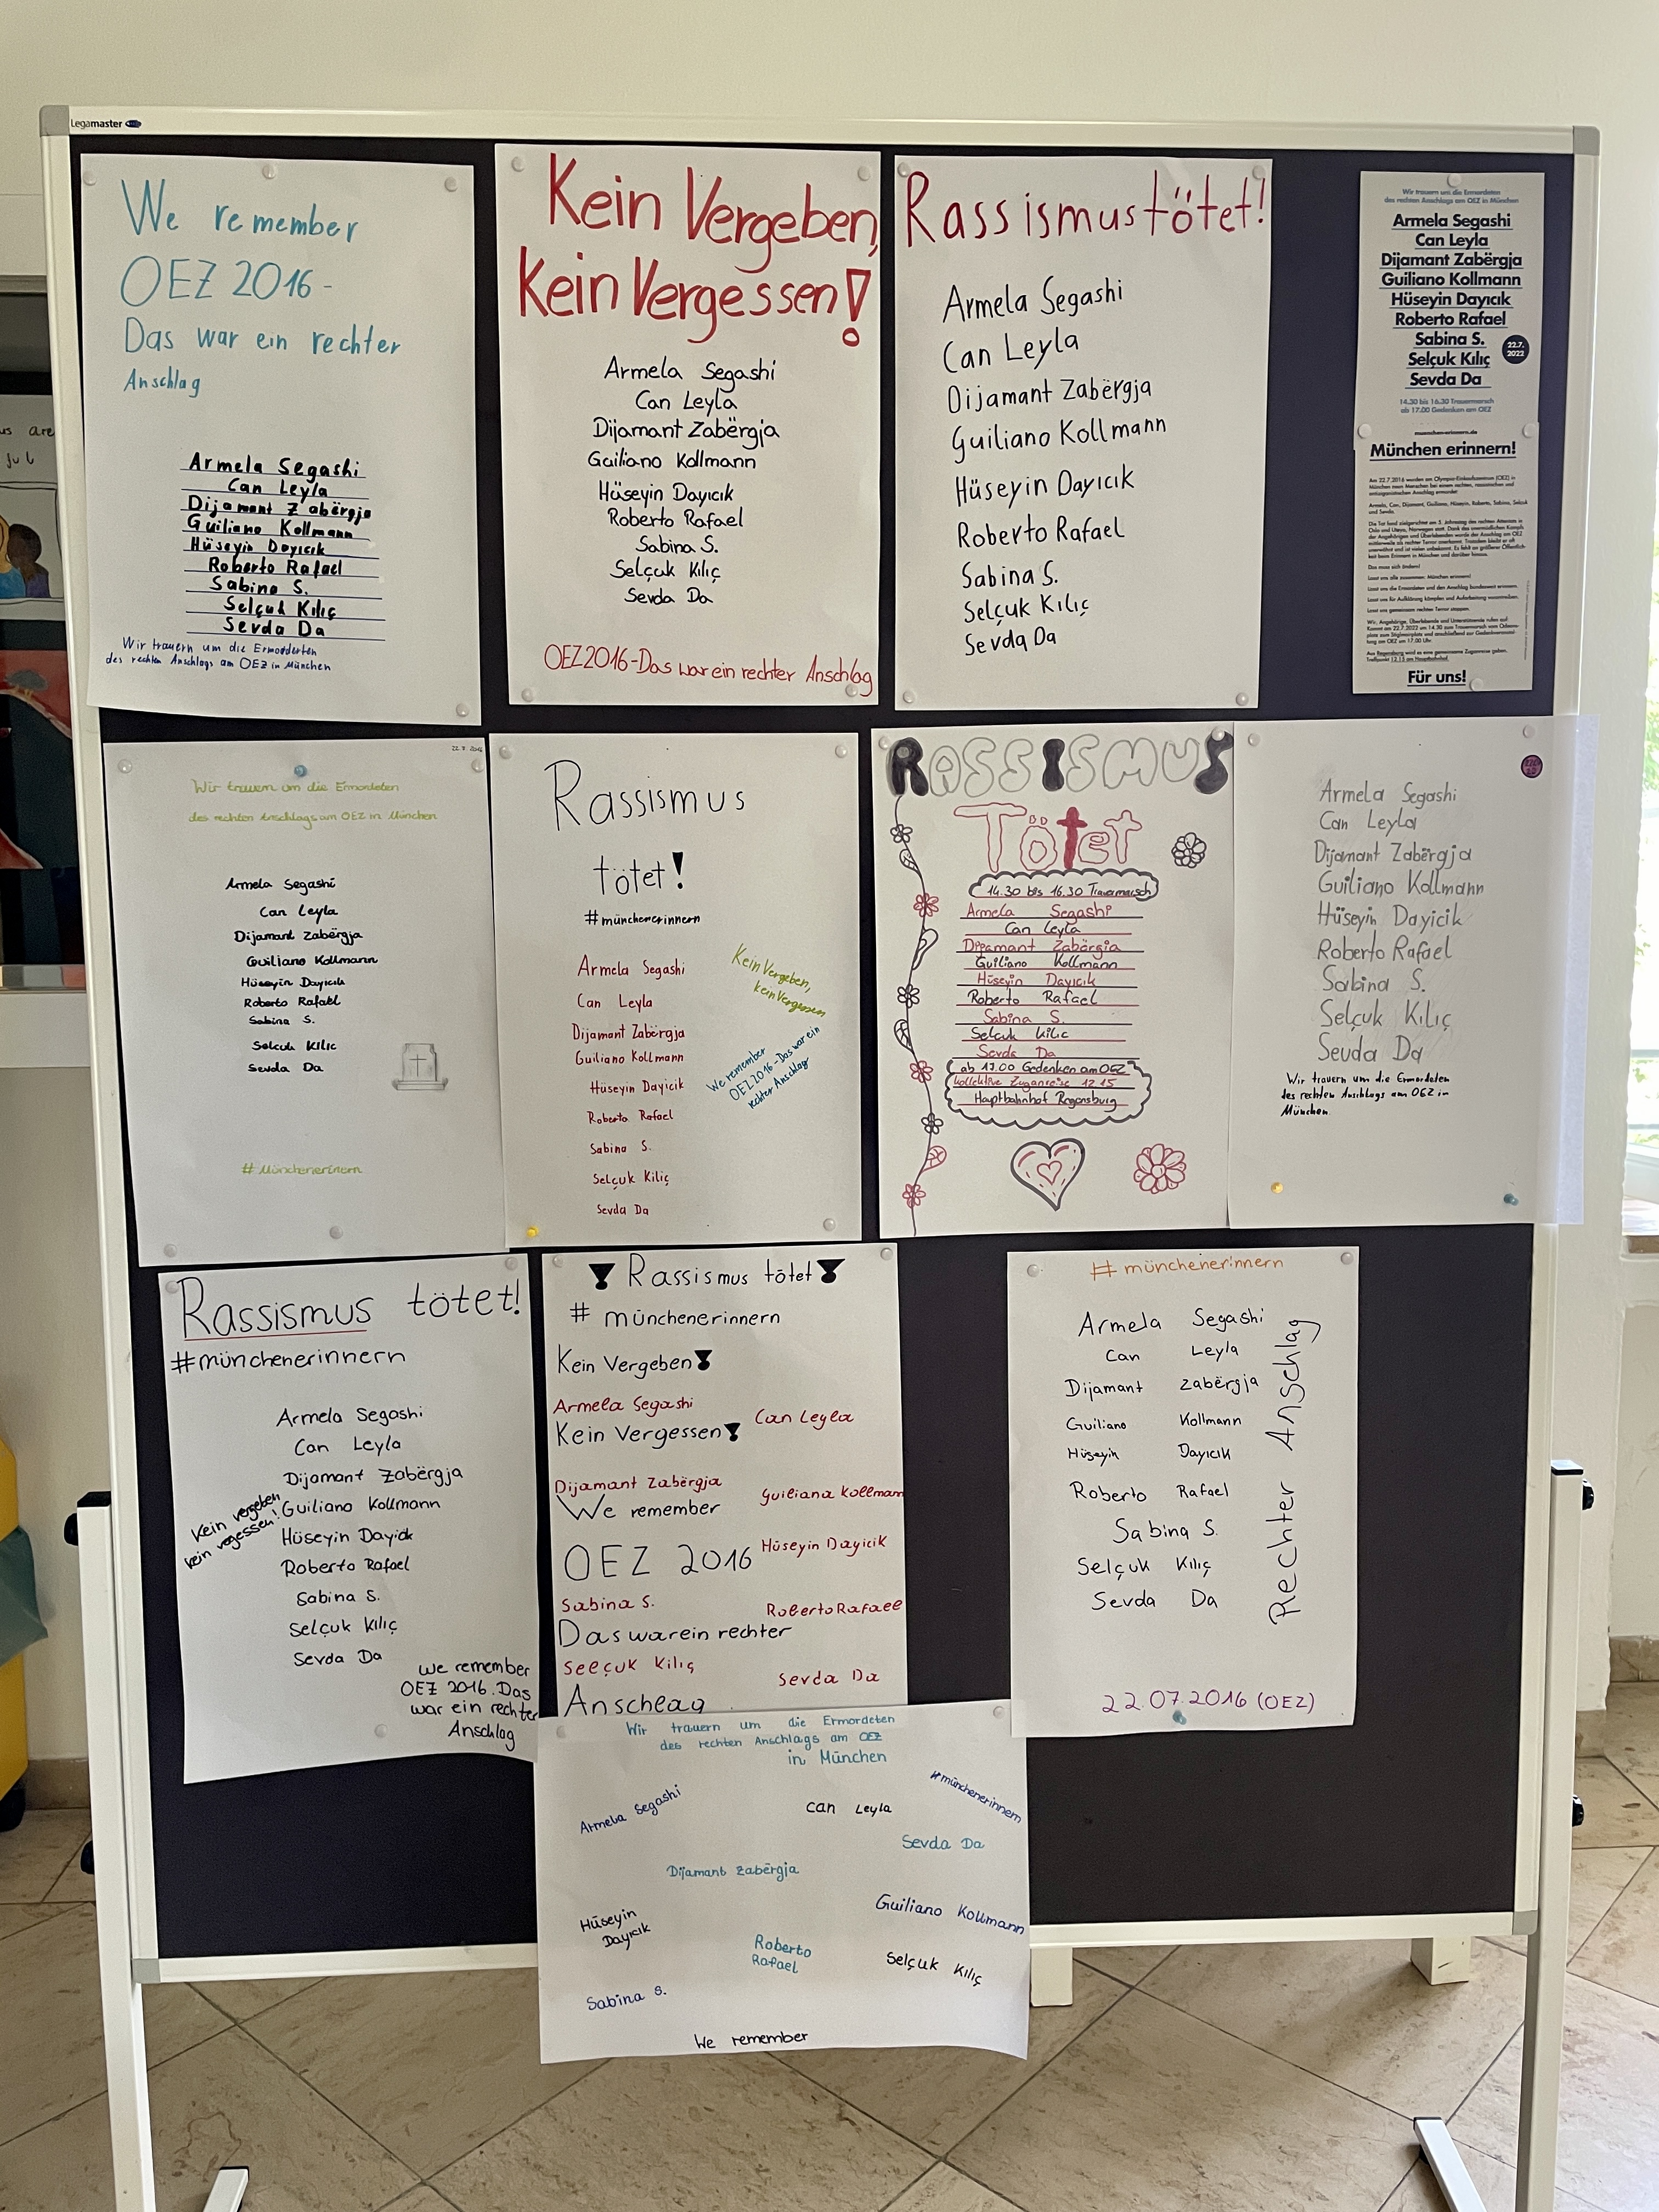 Legamaster
We remember
OEZ 2016-
Das war ein rechter
Anschlag
Armela Segashi
Can Leyla
Dijamant Zabërgja
Guiliano Kollmann
Hüseyin Dayıcık
Roberto Rafael
Sabina S.
Selçuk Kılıç
Sevda Da
Wir trauern um die Ermorderten
des rechten Anschlags am OEZ in München
Kein Vergeben,
Kein Vergessen!
Armela Segashi
Can Leyla
Dijamant Zabërgja
Guiliano Kollmann
Hüseyin Dayıcık
Roberto Rafael
Sabina S.
Selçuk Kılıç
Sevda Da
OEZ 2016-Das war ein rechter Anschlag
Rassismus tötet!
Armela Segashi
Can Leyla
Dijamant Zabërgja
Guiliano Kollmann
Hüseyin Dayıcık
Roberto Rafael
Sabina S.
Selçuk Kılıç
Sevda Da
Wir trauern um die Ermordeten
des rechten Anschlags am OEZ in München
Armela Segashi
Can Leyla
Dijamant Zabërgja
Guiliano Kollmann
Hüseyin Dayıcık
Roberto Rafael
Sabina S.
Selçuk Kılıç
Sevda Da
22.7.
2022
14.30 bis 16.30 Trauermarsch
ab 17.00 Gedenken am OEZ
muenchen-erinnern.de
München erinnern!
Das muss sich ändern!
Lasst uns alle zusammen: München erinnern!
Lasst uns gemeinsam rechten Terror stoppen.
Für uns!
Wir trauern um die Ermordeten
des rechten Anschlags am OEZ in München
Armela Segashi
Can Leyla
Dijamant Zabërgja
Guiliano Kollmann
Hüseyin Dayıcık
Roberto Rafael
Sabina S.
Selcuk Kilic
Sevda Da
# Münchenerinern
Rassismus
tötet!
#münchenerinnern
Armela Segashi
Can Leyla
Dijamant Zabërgja
Guiliano Kollmann
Hüseyin Dayicik
Roberto Rafael
Sabina S.
Selçuk Kiliç
Sevda Da
Kein Vergeben,
kein Vergessen
We remember
OEZ 2016-Das war ein
rechter Anschlag
RASSISMUS
TÖTET
14.30 bis 16.30 Trauermarsch
Armela Segashi
Can Leyla
Dijamant Zabërgja
Guiliano Kollmann
Hüseyin Dayıcık
Roberto Rafael
Sabina S.
Selcuk Kilic
Sevda Da
ab 17.00 Gedenken am OEZ
kollektive Zuganreise 12.15
Hauptbahnhof Regensburg
Armela Segashi
Can Leyla
Dijamant Zabërgja
Guiliano Kollmann
Hüseyin Dayicik
Roberto Rafael
Sabina S.
Selçuk Kılıç
Sevda Da
Wir trauern um die Ermordeten
des rechten Anschlags am OEZ in
München.
Rassismus tötet!
#münchenerinnern
Armela Segashi
Can Leyla
Dijamant Zabërgja
Guiliano Kollmann
Hüseyin Dayıcık
Roberto Rafael
Sabina S.
Selçuk Kılıç
Sevda Da
Kein vergeben
kein vegessen!
we remember
OEZ 2016. Das
war ein rechter
Anschlag
! Rassismus tötet!
# münchenerinnern
Kein Vergeben!
Armela Segashi
Can Leyla
Kein Vergessen!
Dijamant Zabërgja
Guiliana Kollmann
We remember
Hüseyin Dayicik
OEZ 2016
Sabina S.
Roberto Rafael
Das war ein rechter
Selçuk Kiliç
Sevda Da
Anschlag
# münchenerinnern
Armela Segashi
Can Leyla
Dijamant Zabërgja
Guiliano Kollmann
Hüseyin Dayıcık
Roberto Rafael
Sabina S.
Selçuk Kılıç
Sevda Da
Rechter Anschlag
22.07.2016 (OEZ)
Wir trauern um die Ermordeten
des rechten Anschlags am OEZ
in München
#münchenerinnern
Armela Segashi
Can Leyla
Sevda Da
Dijamant Zabërgja
Guiliano Kollmann
Hüseyin
Dayıcık
Roberto
Rafael
Selçuk Kılıç
Sabina S.
We remember